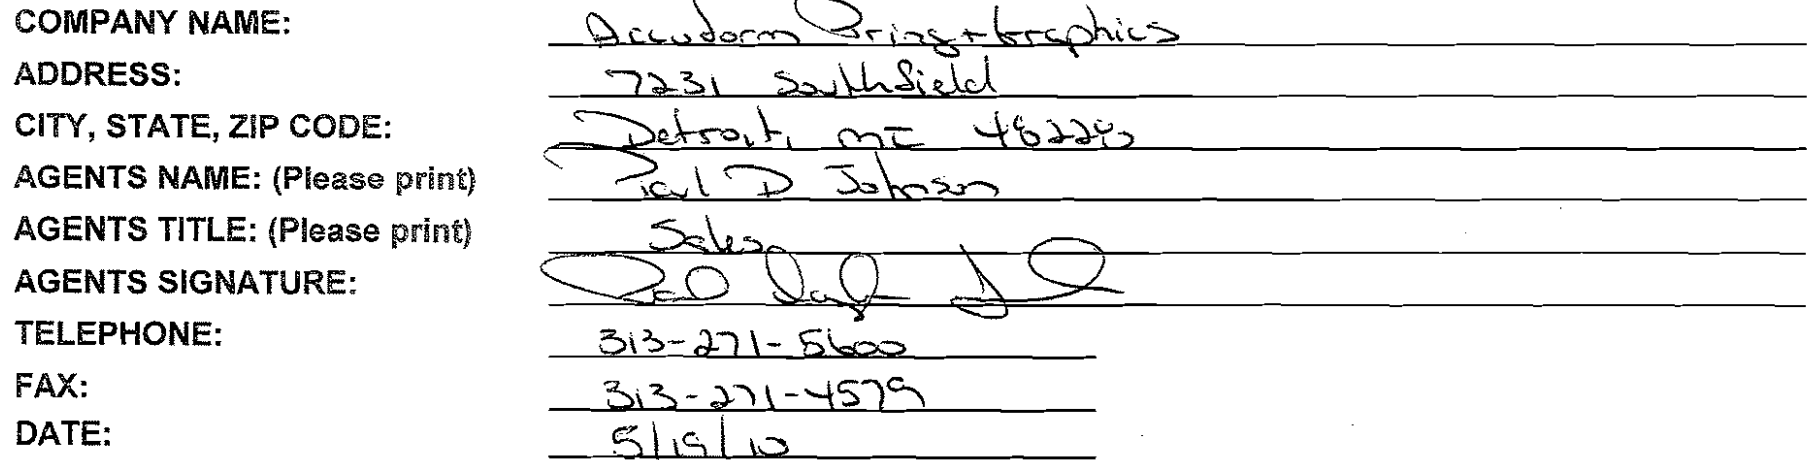 COMPANY NAME: Accuform Pring + Graphics
ADDRESS: 7231 Southfield
CITY, STATE, ZIP CODE: Detroit, MI 48228
AGENTS NAME: (Please print) Paul D Johnson
AGENTS TITLE: (Please print) Sales
AGENTS SIGNATURE:
TELEPHONE: 313-271-5600
FAX: 313-271-4579
DATE: 5/19/10